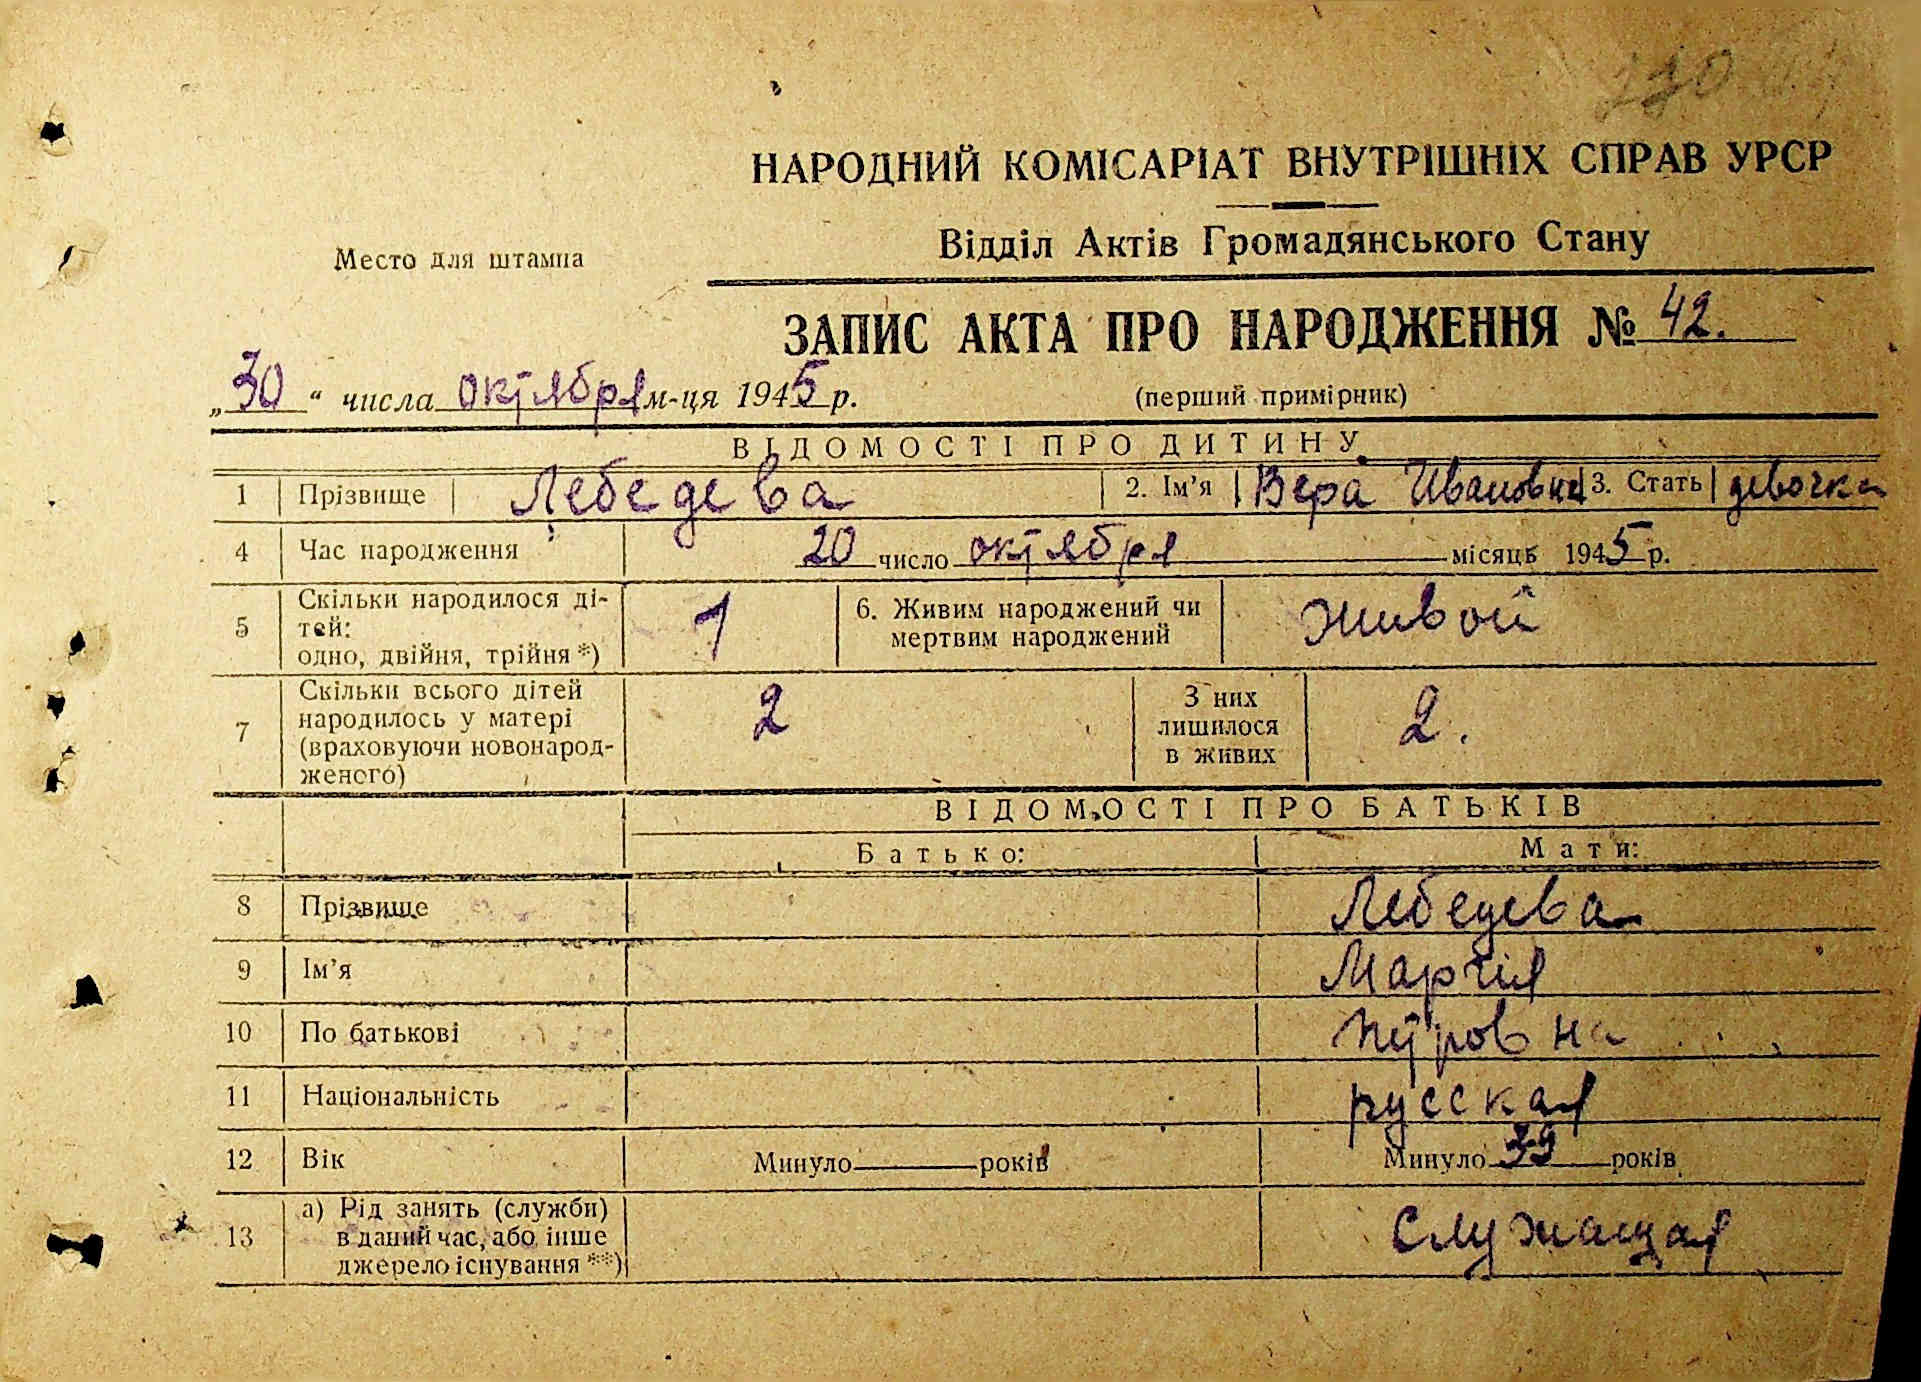 НАРОДНИЙ КОМІСАРІАТ ВНУТРІШНІХ СПРАВ УРСР
Відділ Актів Громадянського Стану
Место для штампа
ЗАПИС АКТА ПРО НАРОДЖЕННЯ № 42.
„30“ числа октября м-ця 1945 р. (перший примірник)
ВІДОМОСТІ ПРО ДИТИНУ
1 Прізвище Лебедева 2. Ім’я Вера Ивановна 3. Стать девочка
4 Час народження 20 число октября місяць 1945 р.
5 Скільки народилося ді-
тей:
одно, двійня, трійня *) 1 6. Живим народжений чи
мертвим народжений живой
7 Скільки всього дітей
народилось у матері
(враховуючи новонарод-
женого) 2 З них
лишилося
в живих 2.
ВІДОМОСТІ ПРО БАТЬКІВ
Батько: Мати:
8 Прізвище Лебедева
9 Ім’я Мария
10 По батькові Петровна
11 Національність русская
12 Вік Минуло років Минуло 39 років
13 а) Рід занять (служби)
в даний час, або інше
джерело існування **) Служащая